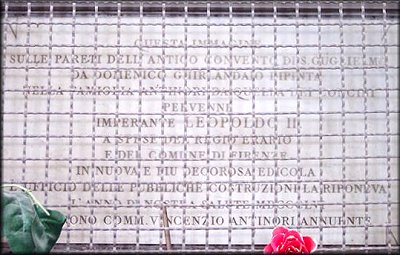 QUESTA IMMAGINE
SULLE PARETI DELL'ANTICO CONVENTO DDS. GUGLIELMO
DA DOMENICO GHIRLANDAIO DIPINTA
NELLA FAMIGLIA ANTINORI
PERVENNE
IMPERANTE LEOPOLDO II
A SPESE DEL REGIO ERARIO
E DEL COMUNE DI FIRENZE
IN NUOVA E PIU DECOROSA EDICOLA
L'UFFICIO DELLE PUBBLICHE COSTRUZIONI LA RIPONEVA
L'ANNO DI NOSTRA SALUTE
COMM. VINCENZIO ANTINORI ANNUENTE